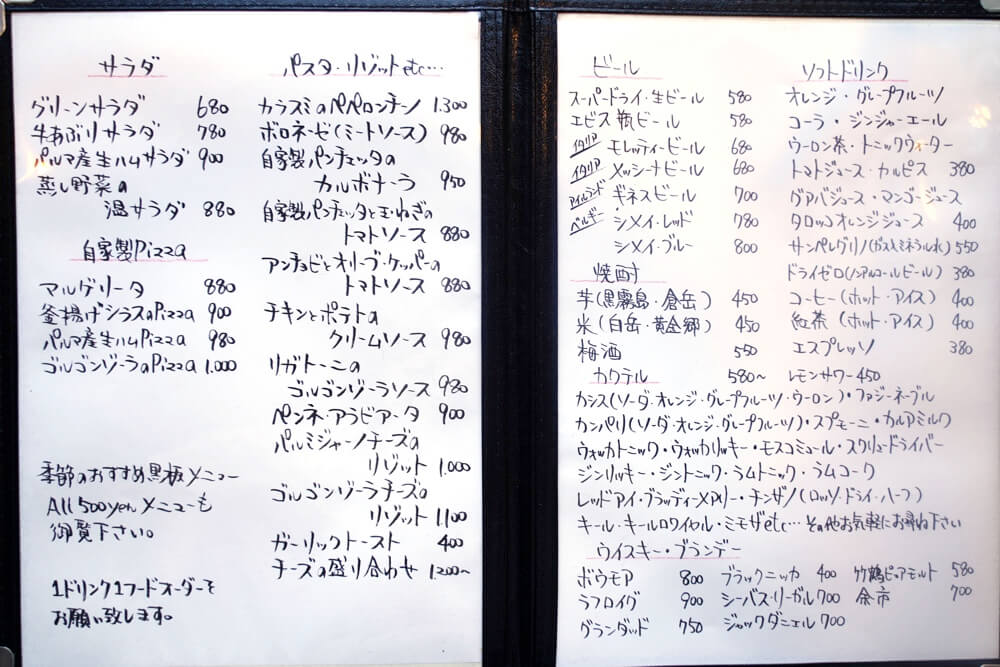 サラダ
グリーンサラダ 680
牛あぶりサラダ 780
パルマ産生ハムサラダ 900
蒸し野菜の
温サラダ 880
自家製Pizza
マルゲリータ 880
釜揚げシラスのPizza 900
パルマ産生ハムPizza 980
ゴルゴンゾーラのPizza 1.000
季節のおすすめ黒板メニュー
All 500yenメニューも
御覧下さい。
1ドリンク1フードオーダーを
お願い致します。
パスタ・リゾットetc…
カラスミのペペロンチーノ 1.300
ボロネーゼ(ミートソース) 980
自家製パンチェッタの
カルボナーラ 950
自家製パンチェッタと玉ねぎの
トマトソース 880
アンチョビとオリーブ・ケッパーの
トマトソース 880
チキンとポテトの
クリームソース 980
リガトーニの
ゴルゴンゾーラソース 980
ペンネ・アラビアータ 900
パルミジャーノチーズの
リゾット 1.000
ゴルゴンゾーラチーズの
リゾット 1.100
ガーリックトースト 400
チーズの盛り合わせ 1.200~
ビール
スーパードライ・生ビール 580
エビス 瓶ビール 580
イタリア モレッティービール 680
イタリア メッシーナビール 680
アイルランド ギネスビール 700
ベルギー シメイ・レッド 780
シメイ・ブルー 800
焼酎
芋(黒霧島・倉岳) 450
米(白岳・黄金郷) 450
梅酒 550
ソフトドリンク
オレンジ・グレープフルーツ
コーラ・ジンジャーエール
ウーロン茶・トニックウォーター
トマトジュース・カルピス 380
グァバジュース・マンゴージュース
タロッコオレンジジュース 400
サンペレグリノ(ガス入ミネラル水) 550
ドライゼロ(ノンアルコールビール) 380
コーヒー(ホット・アイス) 400
紅茶(ホット・アイス) 400
エスプレッソ 380
カクテル 580~ レモンサワー 450
カシス(ソーダ・オレンジ・グレープフルーツ・ウーロン)・ファジーネーブル
カンパリ(ソーダ・オレンジ・グレープフルーツ)・スプモーニ・カルアミルク
ウォッカトニック・ウォッカリッキー・モスコミュール・スクリュードライバー
ジンリッキー・ジントニック・ラムトニック・ラムコーク
レッドアイ・ブラッディーメアリー・チンザノ(ロッソ・ドライ・ハーフ)
キール・キールロワイヤル・ミモザetc…その他お気軽にお尋ね下さい
ウイスキー・ブランデー
ボウモア 800 ブラックニッカ 400 竹鶴ピュアモルト 580
ラフロイグ 900 シーバス・リーガル 700 余市 700
グランダッド 750 ジャックダニエル 700